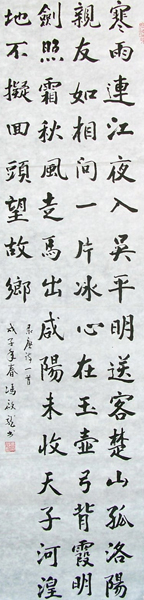 寒雨連江夜入吳平明送客楚山孤洛陽
親友如相問一片冰心在玉壺弓背霞明
劍照霜秋風走馬出咸陽未收天子河湟
地不擬回頭望故鄉
录唐詩一首
戊子年春馮